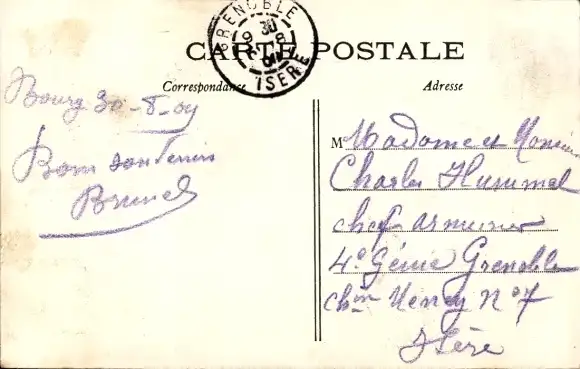 GRENOBLE
9 30
8
09
ISERE
CARTE POSTALE
Correspondance
Adresse
Bourg 30-8-09
Bons souvenirs
Brunet
M Madame et Monsieur
Charles Hummel
chef armurier
4e Génie Grenoble
chin N° 7
Isère